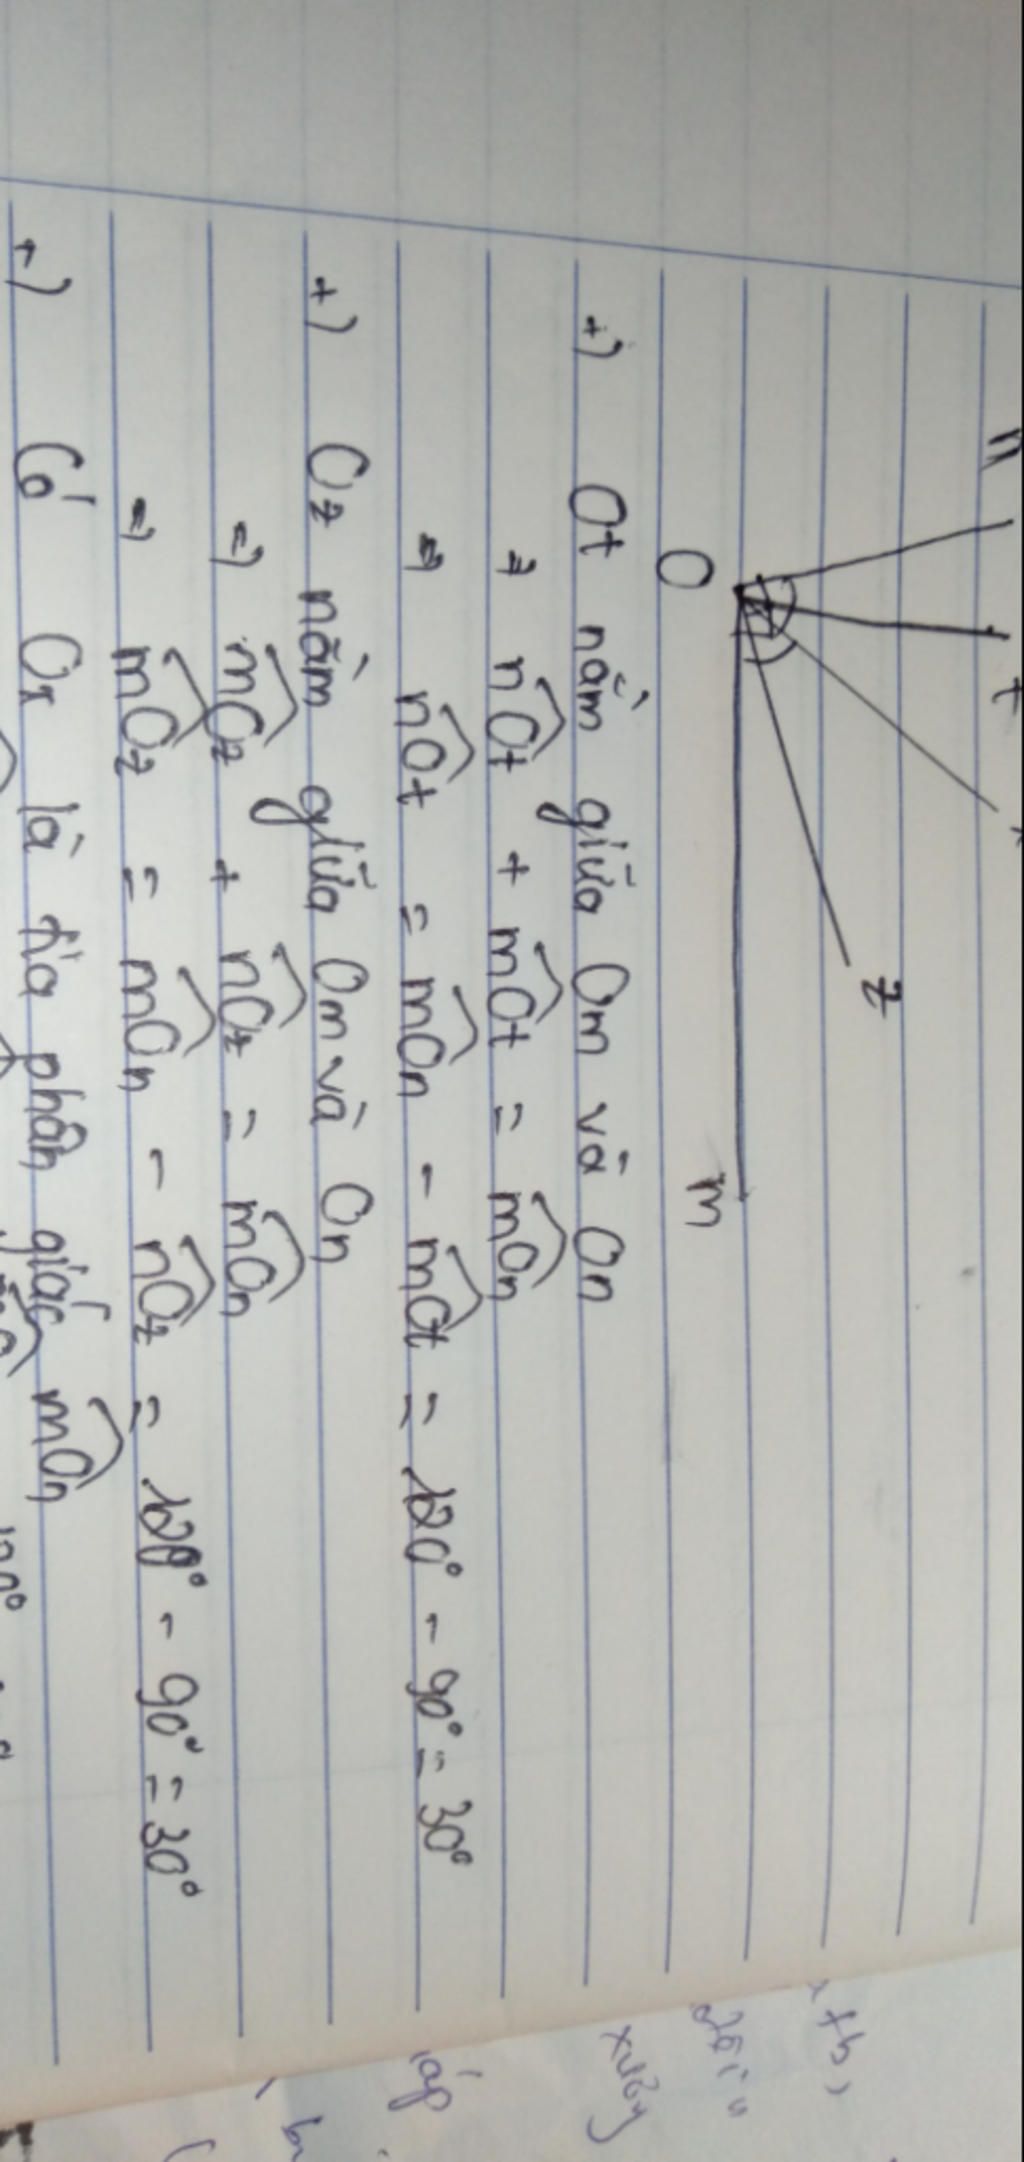 n
t
z
O
m
+) Ot nằm giữa Om và On
⇒ nOt + mOt = mOn
⇒ nOt = mOn - mOt = 120° - 90° = 30°
+) Oz nằm giữa Om và On
⇒ mOz + nOz = mOn
⇒ mOz = mOn - nOz = 120° - 90° = 30°
+) Có Ox là tia phân giác mOn
xuây